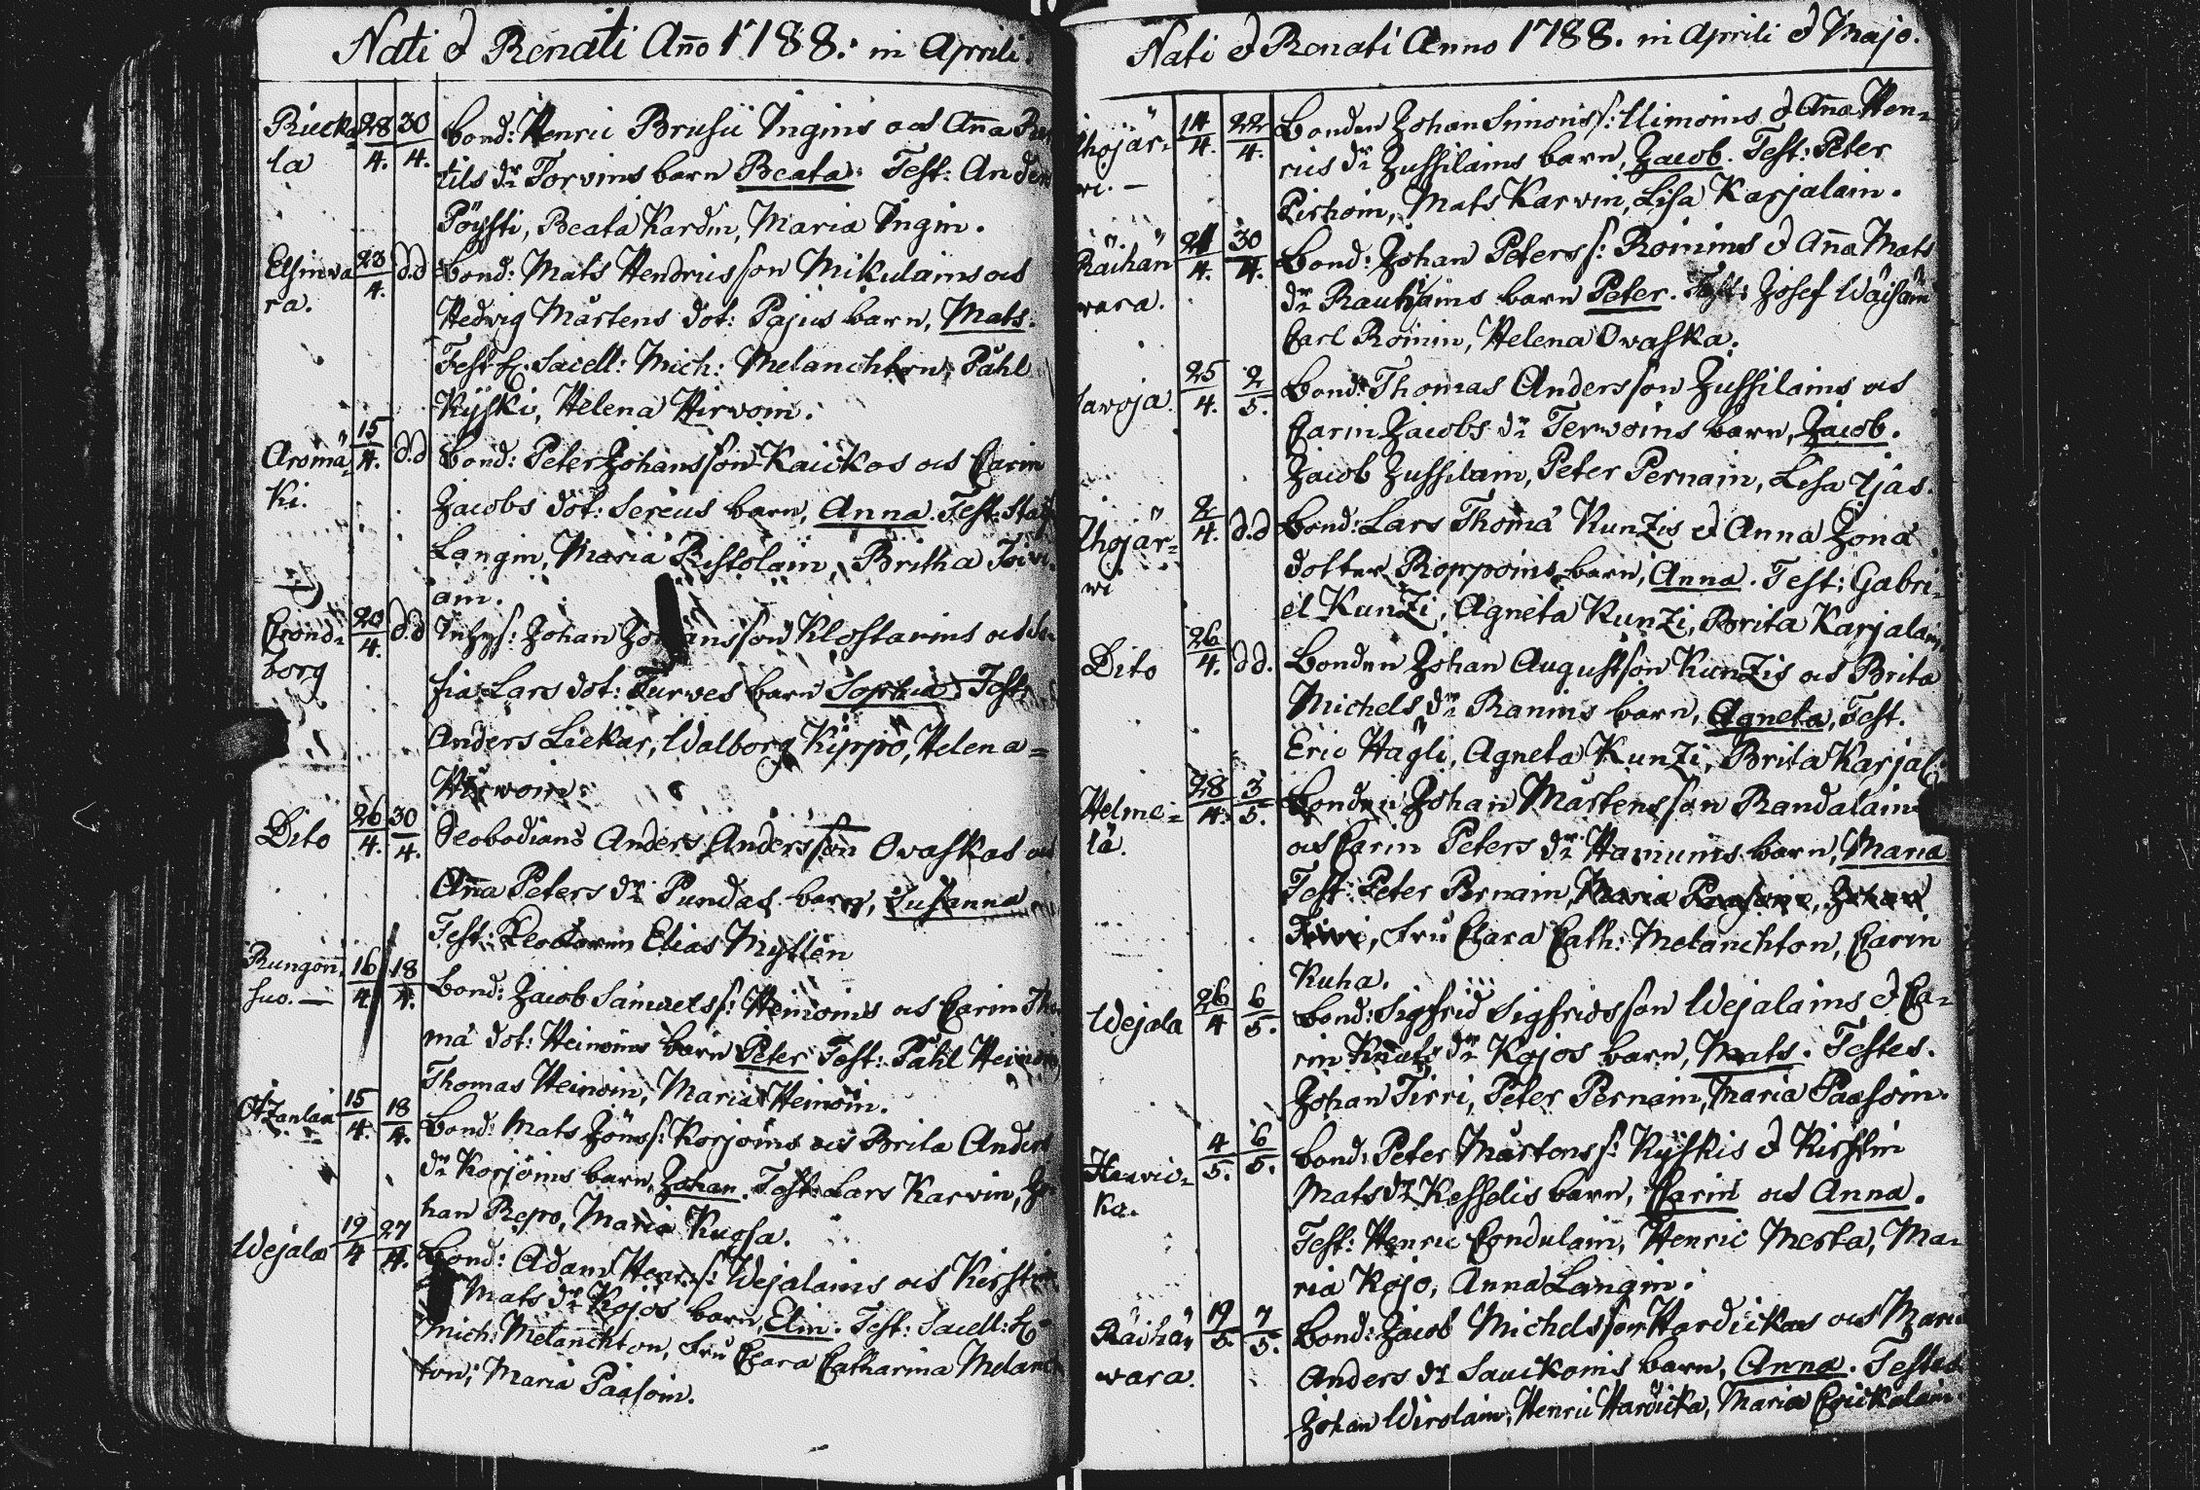 Nati & Renati Año 1788. in Aprili.
Riecka 28/4. 30/4. Bond: Henric Brusii Ingins och Aña
la tils dr Torvins barn Beata. Test: Anders
Pöysti, Beata Kardin, Maria Ingin.
Elsinva 23/4. d.d Bond: Mats Hendrisson Mikulains och
ra. Hedvig Mårtens dot: Pajus barn, Mats.
Test: Sacell: Mich: Melanchton, Påhl
Kyski, Helena Hirvoin.
Aromä 15/4. d.d Bond: Peter Johansson Kauckos och Carin
ki. Jacobs dot: Sereus barn, Anna. Test: Staf
Langin, Maria Ristolain, Britha Toivi
ain.
Crono 20/4. d.d Johan Johansson Klostarins och So
borg fia Lars dot: Turves barn Sophia. Test:
Anders Liekar, Walborg Kippo, Helena
Hirwoin.
Dito 26/4. 30/4. Slobodians Anders Andersson Ovaskas och
Aña Peters dr Pundas barn, Susanna
Test: Elias Mytlén
Rungon 16/4 18/4. Bond: Jacob Samuelss: Heinoins och Carin Tho
suo. må dot: Heinoins barn Peter Test: Påhl Heinoin
Thomas Heinoin, Maria Heinoin.
15/4. 18/4. Bond: Mats Jönss: Korjoins och Brita Anders
dr Korjoins barn, Johan. Test: Lars Karvin, Jo
han Repo, Maria Kugsa.
Wejala 19/4 27/4. Bond: Adam Henrs: Wejalains och Kirstin
Mats dr Kojos barn, Elin. Test: Sacell:
Mich: Melanchton, Fru Clara Catharina Melanch
ton, Maria Paasoin.
Nati & Renati Anno 1788. in Aprili & Majo.
Ihojär- 14/4. 22/4. Bonden Johan Simonss: Uimoins & Aña Hen-
wi. rics dr Jussilains barn, Jacob. Test: Peter
Pirhoin, Mats Karvin, Lisa Karjalain.
Räihän 21/4. 30/4. Bond: Johan Peterss: Roinins & Aña Mats
wara. dr Rautiains barn Peter. Test: Josef Wäisäin
Carl Roinin, Helena Ovaska.
Savoja 25/4. 2/5. Bond: Thomas Andersson Jussilains och
Carin Jacobs dr Terwoins barn, Jacob.
Jacob Jussilain, Peter Pernain, Lisa Ijäs.
Ihojär- 2/4. d.d Bond: Lars Thomä Kunzis & Anna Jona
wi dotter Roppoins barn, Anna. Test: Gabri-
el Kunzi, Agneta Kunzi, Brita Karjalain
Dito 26/4. dd. Bonden Johan Augustson Kunzis och Brita
Michels dr Ranins barn, Agneta, Test.
Eric Hägli, Agneta Kunzi, Brita Karjal:
Helme- 28/4. 3/5. Bonden Johan Mårtensson Randalains
lä. och Carin Peters dr barn, Maria
Test: Peter Pernain, Maria Paasoin, Johan
Tirri, Fru Clara Cath: Melanchton, Carin
Kuha.
Wejala 26/4 6/5. Bond: Sigfrid Sigfridsson Wejalains & Ca-
rin Knuts dr Kojos barn, Mats. Testes.
Johan Tirri, Peter Pernain, Maria Paasoin.
Harvic- 4/5. 6/5. Bond: Peter Mårtens s: Kyskis & Kirstin
ka. Mats dr Kesselis barn, Carin och Anna.
Test: Henric Condulain, Henric Mesta, Ma-
ria Kojo, Anna Langin.
Räihän 19/5. 7/5. Bond: Jacob Michelsson Hardickas och Maria
wara. Anders dr Sauckoins barn, Anna. Testes
Johan Wirolain, Henric Hardicka, Maria Erickalain.